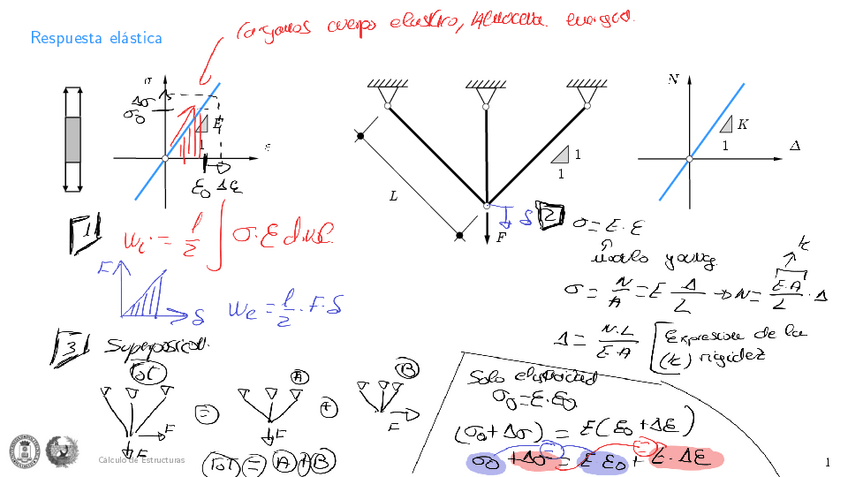 Respuesta elástica
cargamos cuerpo elastico, Almacena energia
σ
Δσ
σ₀
E
1
ε
ε₀ Δε
L
1
1
F
δ
N
K
1
Δ
1
Wi = 1/2 ∫ σ·ε d.vol.
F
δ
We = 1/2 · F·δ
2
σ = E·ε
modulo young
k
σ = N/A = E Δ/L → N = E·A/L · Δ
Δ = N·L/E·A
Expresion de la
(k) rigidez
3 Superposicion.
TOT = A + B
F
F
F
F
TOT = A + B
Solo elasticidad
σ₀ = E·ε₀
(σ₀ + Δσ) = E(ε₀ + Δε)
σ₀ + Δσ = E ε₀ + E·Δε
Cálculo de Estructuras
1